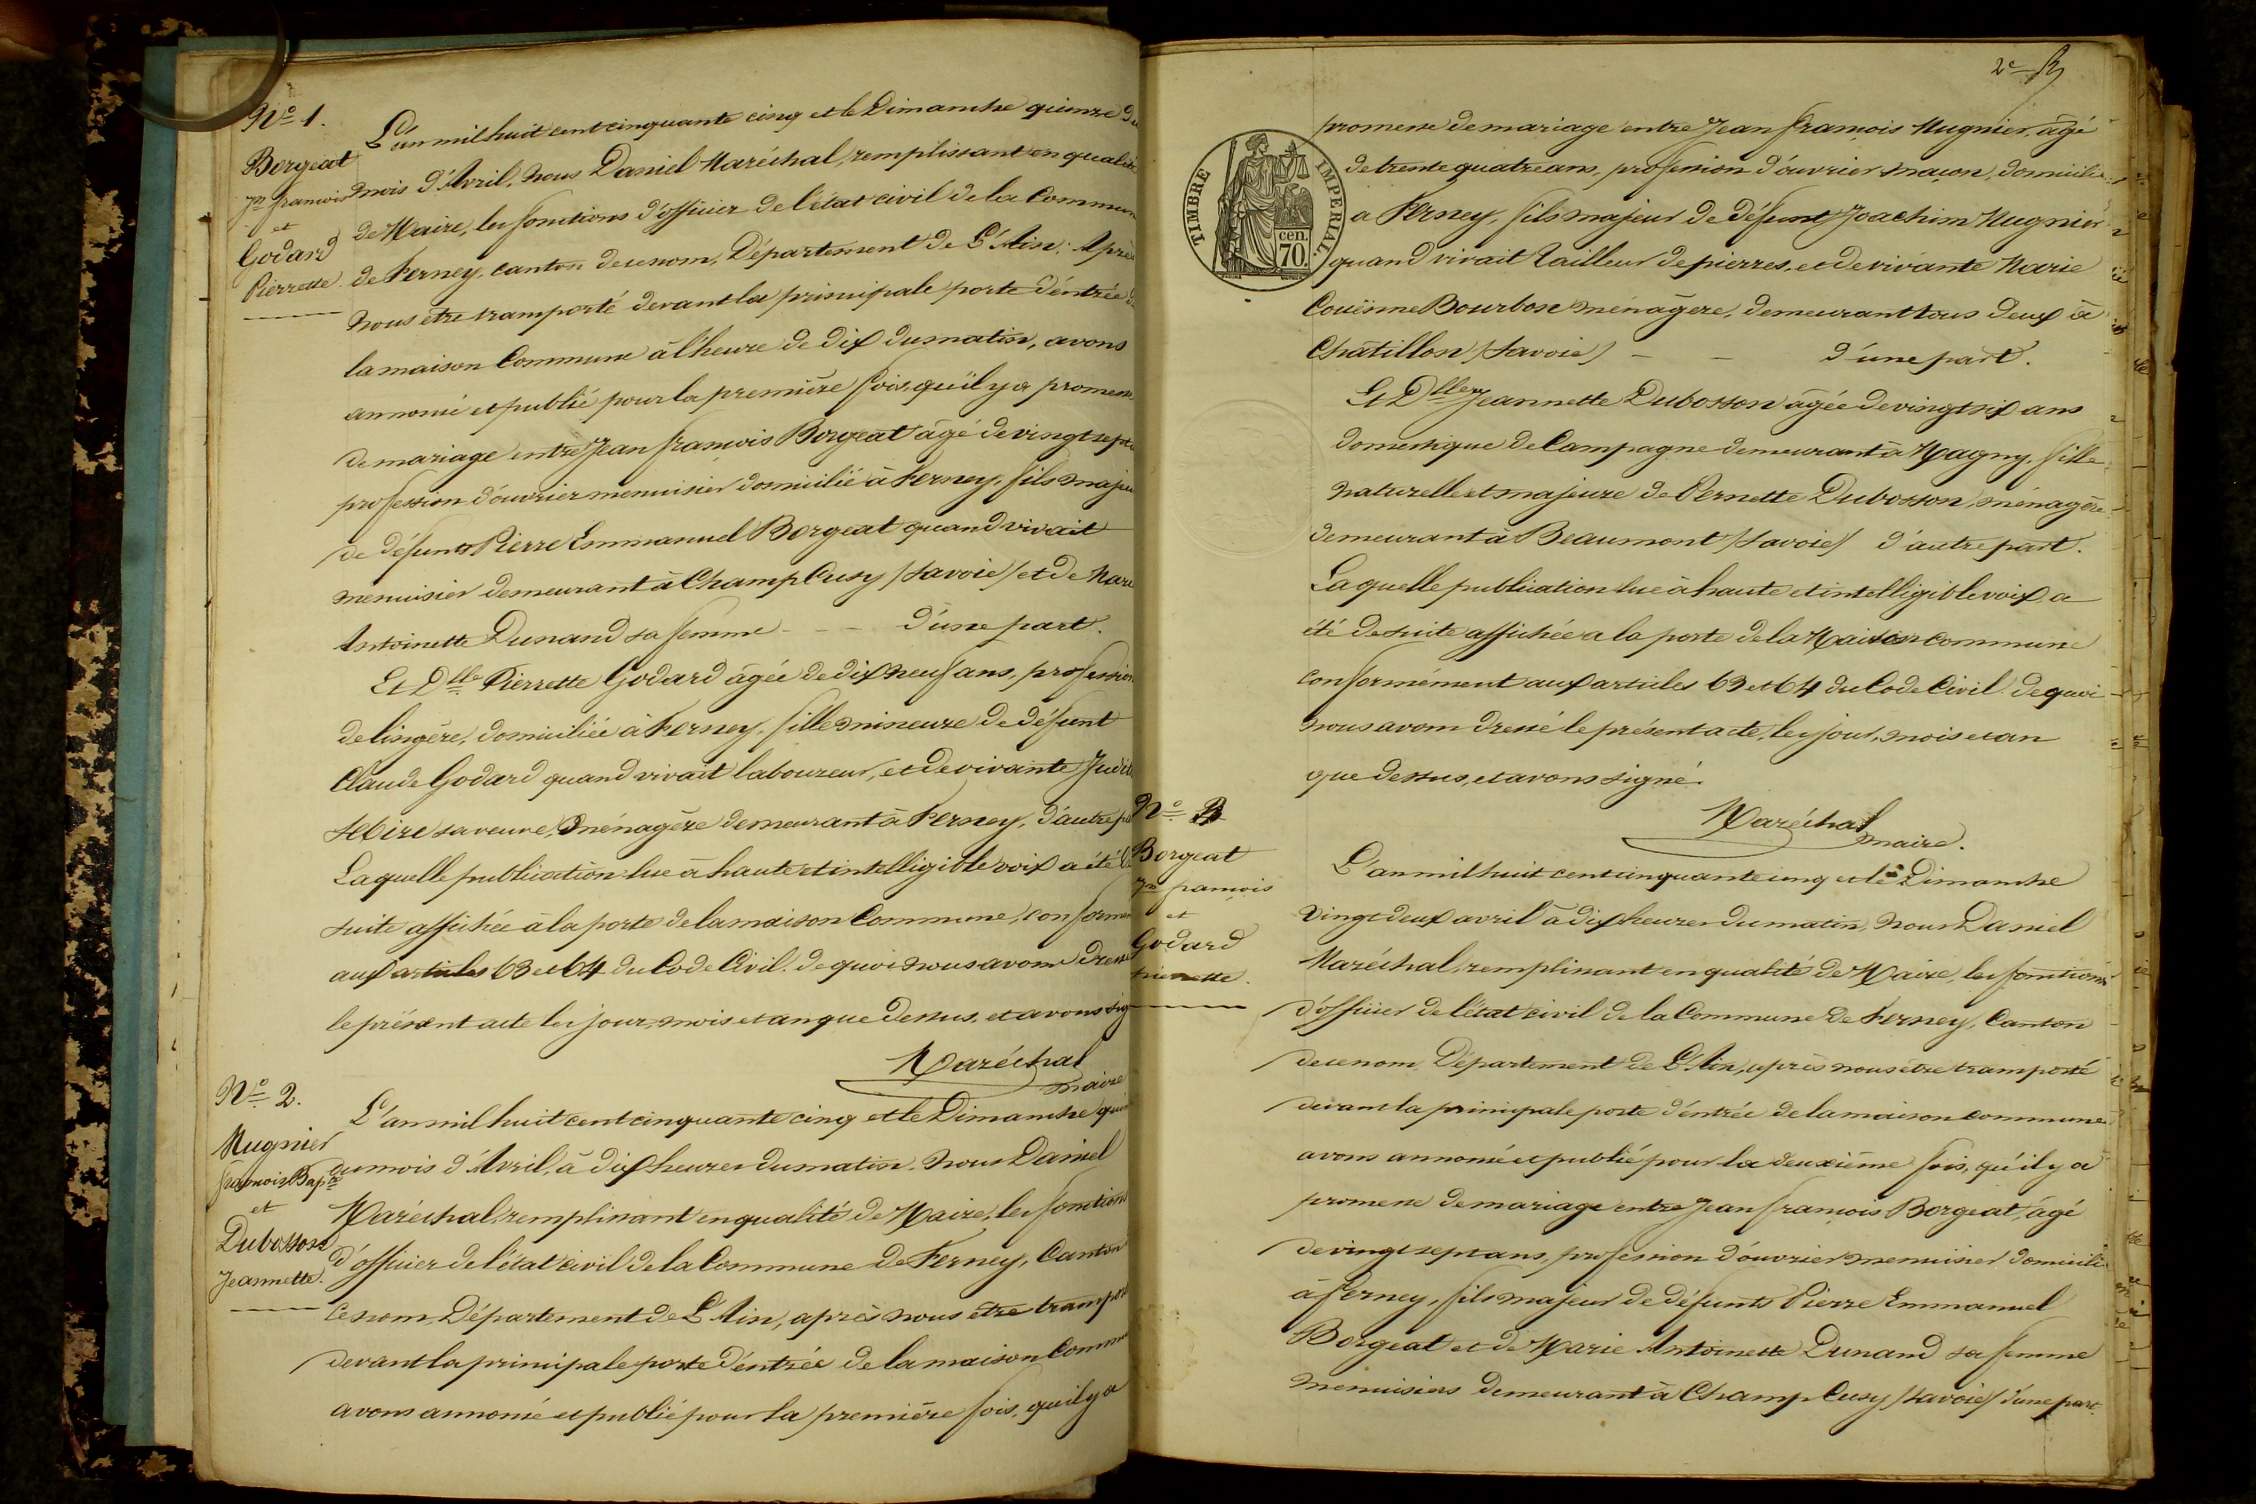 No 1.
Borgeat
Jn françois
et
Godard
Pierrette.
L'an mil huit cent cinquante cinq et le Dimanche quinze du
mois d'Avril, nous Daniel Maréchal, remplissant en qualité
de Maire, les fonctions d'officier de l'état civil de la Commune
de Ferney, canton de ce nom, Département de L'Ain; Après
nous être transporté devant la principale porte d'entrée de
la maison Commune à l'heure de dix du matin, avons
annoncé et publié pour la première fois, qu'il y a promesse
de mariage entre Jean françois Borgeat âgé de vingt sept
profession d'ouvrier menuisier domicilié à Ferney, fils majeur
de défunts Pierre Emmanuel Borgeat quand vivait
menuisier demeurant à Champ Cusy (Savoie) et de Marie
Antoinette Dunand sa femme - - - d'une part.
Et Dlle Pierrette Godard âgée de dix neuf ans, profession
de lingère, domiciliée à Ferney, fille mineure de défunt
Claude Godard quand vivait laboureur, et de vivante
sa veuve, ménagère demeurant à Ferney, d'autre part
Laquelle publication lue à haute et intelligible voix a été de
suite affichée à la porte de la maison Commune, conformément
aux articles 63 et 64 du Code Civil. de quoi nous avons dressé
le présent acte les jour, mois et an que dessus, et avons signé
Maréchal
maire
No 2.
Mugnier
françois Bapte
et
Dubosson
Jeannette.
L'an mil huit cent cinquante cinq et le Dimanche quinze
du mois d'Avril, à dix heures du matin. Nous Daniel
Maréchal, remplissant en qualité de Maire, les fonctions
d'officier de l'état civil de la Commune de Ferney, Canton
ce nom, Département de L'Ain, après nous être transporté
devant la principale porte d'entrée de la maison Commune
avons annoncé et publié pour la première fois, qu'il y a
2e
TIMBRE IMPERIAL.
70 cen.
promesse de mariage entre Jean françois Mugnier, âgé
de trente quatre ans, profession d'ouvrier maçon, domicilié
a Ferney, fils majeur de défunt Joachim Mugnier
quand vivait Tailleur de pierres, et de vivante Marie
Bourbon ménagère, demeurant tous deux à
Chatillon (Savoie) - - d'une part.
Et Dlle Jeannette Dubosson âgée de vingt six ans
domestique de Campagne demeurant à Magny, fille
naturelle et majeure de Pernette Dubosson, ménagère
demeurant à Beaumont (Savoie) d'autre part.
Laquelle publication lue à haute et intelligible voix, a
été de suite affichée a la porte de la Maison commune
conformément aux articles 63 et 64 du Code Civil. de quoi
nous avons dressé le présent acte, les jour, mois et an
que dessus, et avons signé.
Maréchal
maire.
No 3
Borgeat
Jn françois
et
Godard
Pierrette.
L'an mil huit cent cinquante cinq et le Dimanche
vingt deux avril à dix heures du matin, nous Daniel
Maréchal, remplissant en qualité de Maire, les fonctions
d'officier de l'état civil de la Commune de Ferney, Canton
de ce nom, Département de L'Ain, après nous être transporté
devant la principale porte d'entrée de la maison commune
avons annoncé et publié pour la deuxième fois, qu'il y a
promesse de mariage entre Jean françois Borgeat, âgé
de vingt sept ans, profession d'ouvrier menuisier domicilié
à ferney, fils majeur de défunts Pierre Emmanuel
Borgeat et de Marie Antoinette Dunand sa femme
menuisiers demeurant à Champ Cusy (Savoie) d'une part.